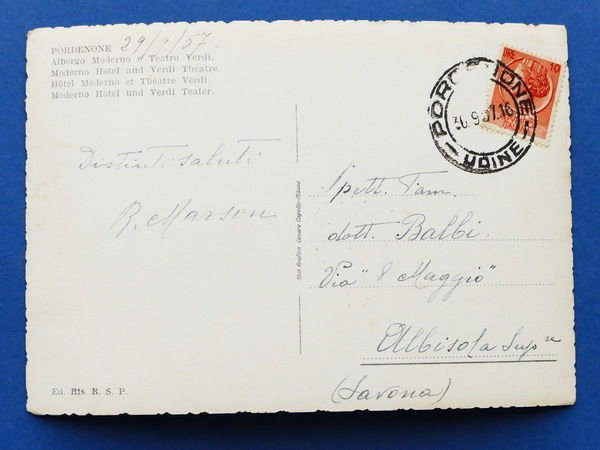 PORDENONE 29/9/57.
Albergo Moderno e Teatro Verdi.
Moderno Hotel and Verdi Theatre.
Hôtel Moderno et Théatre Verdi.
Moderno Hotel und Verdi Teater.
LIRE 10
PORDENONE
30.9.57.16
UDINE
Distinti saluti
R. Marson
Stab. Grafico Cesare Capello-Milano
Spett. Fam.
dott. Balbi
Via "8 Maggio"
Albisola Supre
(Savona)
Ed. Ris. R. S. P.